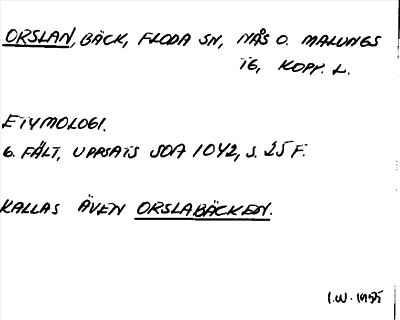 ORSLAN, BÄCK, FLODA SN, NÅS O. MALUNGS
TG, KOPP. L.
ETYMOLOGI.
G. FÄLT, UPPSATS SOA 1042, S. 25 F.
KALLAS ÄVEN ORSLABÄCKEN.
I.W. 1975